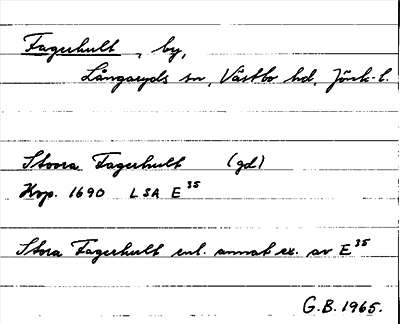 Fagerhult, by,
Långaryds sn, Västbo hd, Jönk. l.
Stoora Fagerhult (gd)
Kop. 1690 LSA E 35
Stora Fagerhult enl. annat ex. av E 35
G.B. 1965.